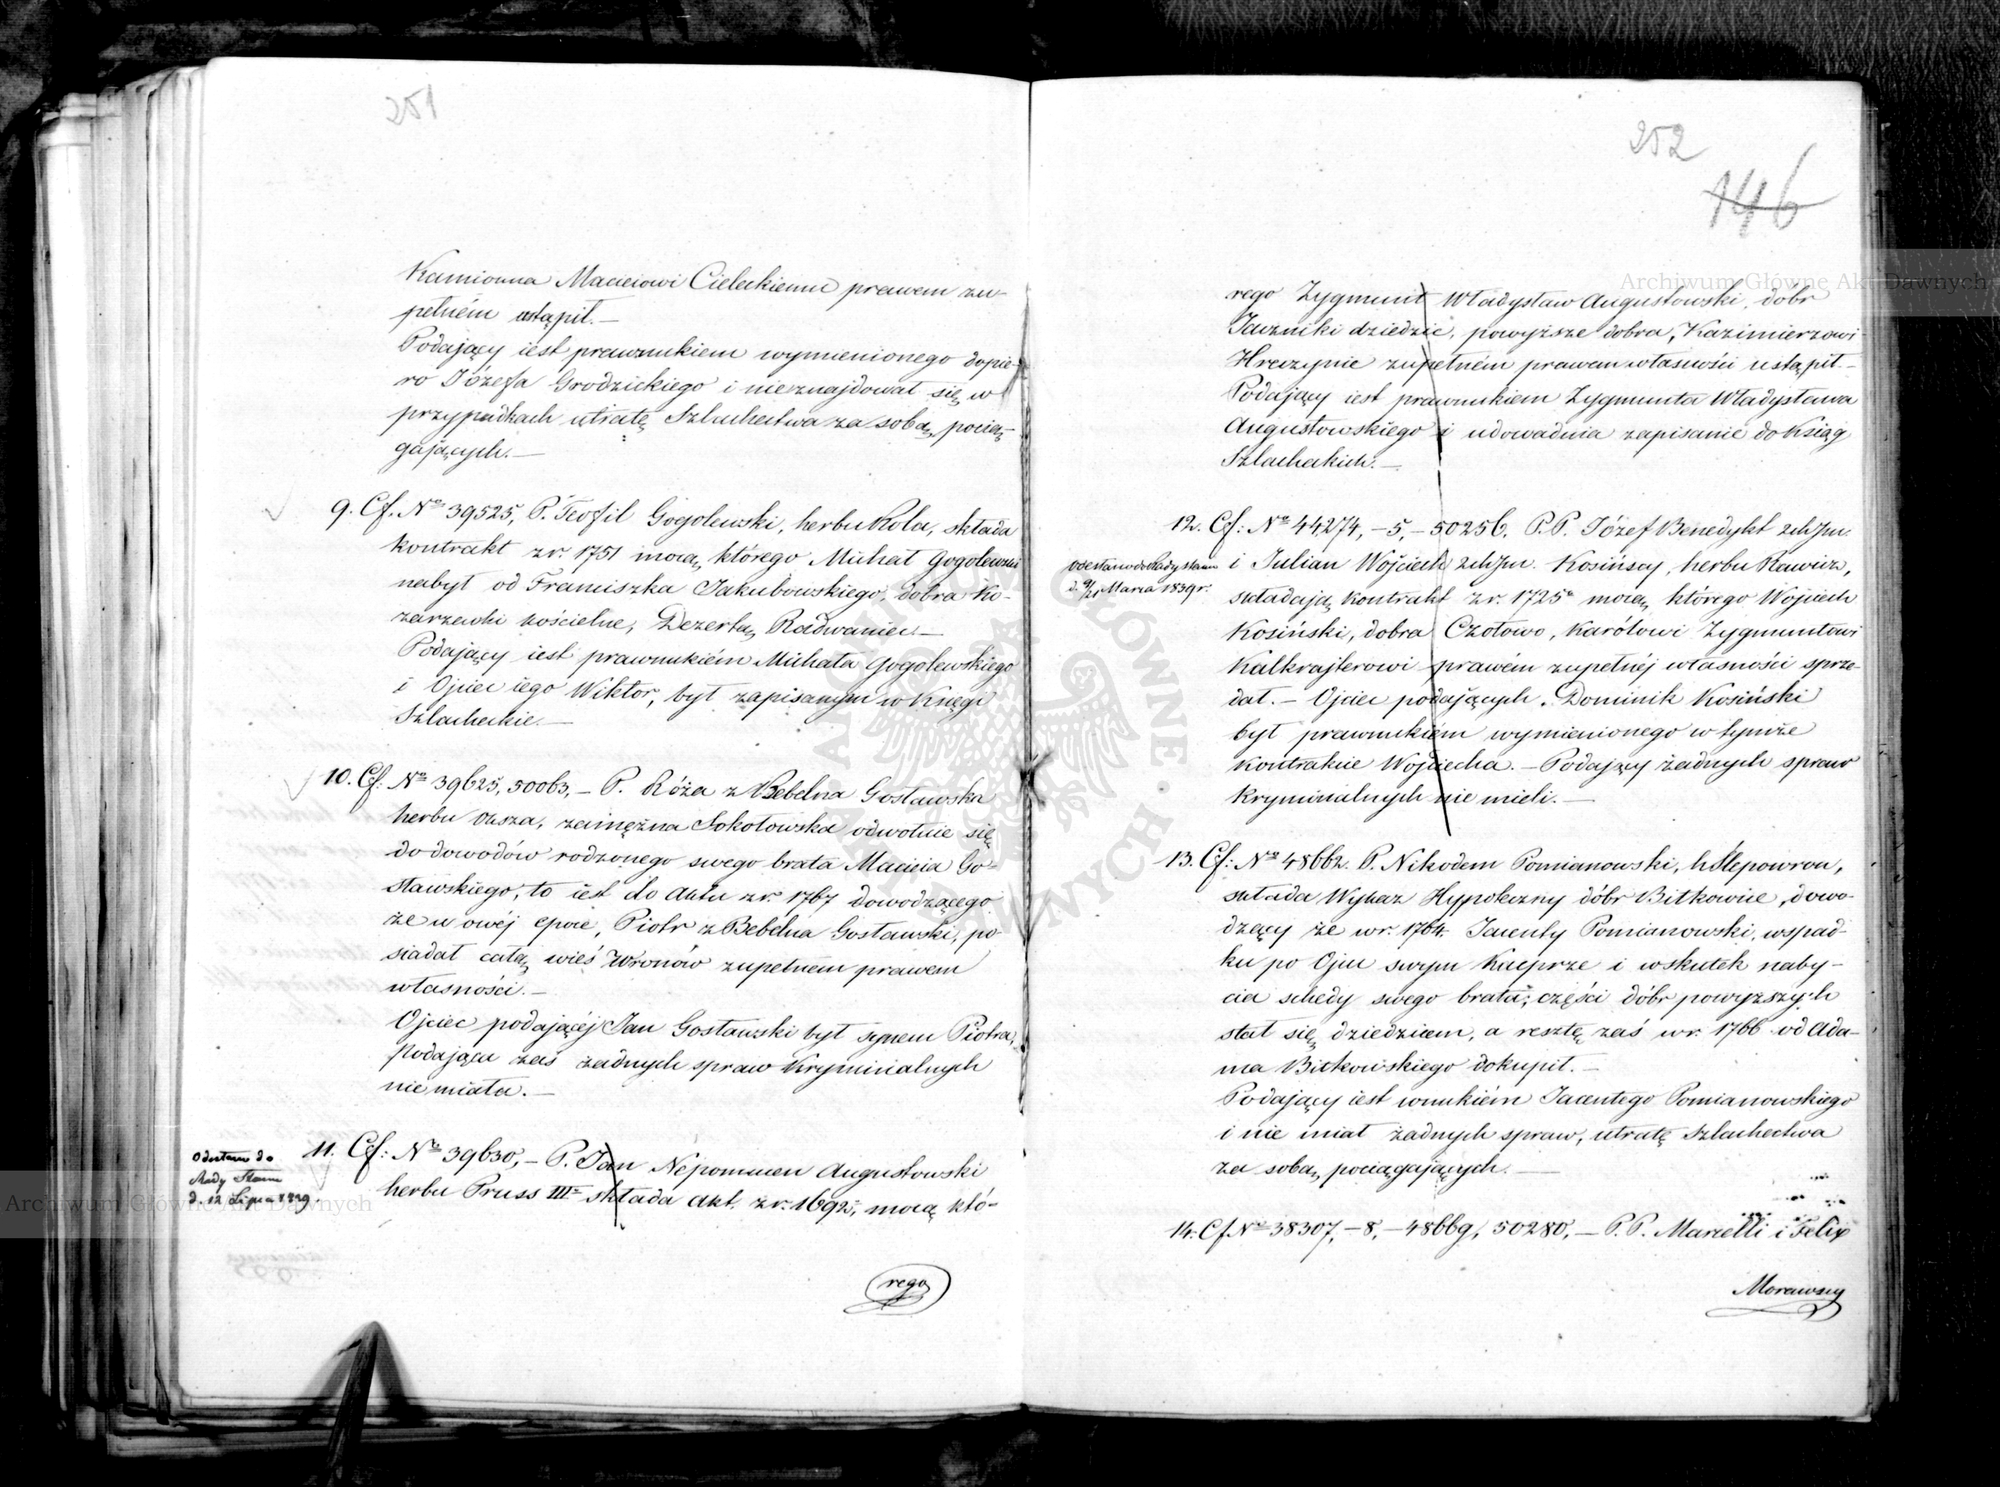 251
Kamionna Maciejowi Cieleckiemu prawem zu-
pełném ustąpił. —
Podający iest prawnukiem wymienionego dopie-
ro Józefa Grodzickiego i nieznajdował się w
przypadkach utratę Szlachectwa za sobą, pocią-
gających. —
9. Cf. No 39525, P. Teofil Gogolewski, herbu Kola, składa
kontrakt z r. 1751 mocą, którego Michał Gogolewski
nabył od Franciszka Jakubowskiego, dobra Ko-
zarzewki kościelne, Dezerta, Radwaniec. —
Podający iest prawnukiém Michała Gogolewskiego
i Ojciec iego Wiktor, był zapisanym w Księgi
Szlacheckie. —
10. Cf: No 39625, 50063, — P. Róża z Bebelna Gosławska
herbu Oksza, zamężna Sokołowska odwołuie się
do dowodów rodzonego swego brata Macieja Go-
sławskiego, to iest do Aktu z r. 1767 dowodzącego
że w owéj epoce, Piotr z Bebelna Gosławski, po-
siadał całą wieś Wronów zupełnem prawem
własności. —
Ojciec podającéj Jan Gosławski był synem Piotra,
Podająca zaś żadnych spraw Kryminalnych
nie miała. —
Odesłano do
Rady Stanu
d. 12 Lipca 1839.
11. Cf: No 39630, — P. Jan Nepomucen Augustowski
herbu Pruss III składa Akt z r. 1692, mocą któ-
rego
252
146
rego Zygmunt Władysław Augustowski, dobr
Jaźniki dziedzic, powyższe dobra, Kazimierzowi
Hreczynie zupełném prawem własności ustąpił. —
Podający iest prawnukiem Zygmunta Władysława
Augustowskiego i udowadnia zapisanie do Ksiąg
Szlacheckich. —
12. Cf: No 44274, — 5, — 50256, P.P. Józef Benedykt 2ch Im.
odesłano do Rady Stanu
d. 9/21 Marca 1839 r.
i Julian Wojciech 2ch Im. Kosińscy, herbu Rawicz,
składają kontrakt z r. 1725 mocą, którego Wojciech
Kosiński, dobra Czołowo, Karólowi Zygmuntowi
Kalkrajterowi prawém zupełnéj własności sprze-
dał. — Ojciec podających, Dominik Kosiński
był prawnukiém wymienionego w tymże
Kontrakcie Wojciecha. — Podający żadnych spraw
Kryminalnych nie mieli. —
13. Cf: No 48662. P. Nikodem Pomianowski, h Ślepowron,
składa Wykaz Hypoteczny dóbr Bitkowice, dowo-
dzący że w r. 1764. Jacenty Pomianowski, w spad-
ku po Ojcu swym Kacprze i wskutek naby-
cia schedy swego brata, części dóbr powyższych
stał się dziedzicem, a resztę zaś w r. 1766 od Ada-
ma Bitkowskiego dokupił. —
Podający iest wnukiém Jacentego Pomianowskiego
i nie miał żadnych spraw, utratę Szlachectwa
za sobą, pociągających. —
14. Cf No 38307, — 8, — 48669, 50280, — P.P. Marcelli i Felix
Morawscy
Archiwum Główne Akt Dawnych
Archiwum Główne Akt Dawnych